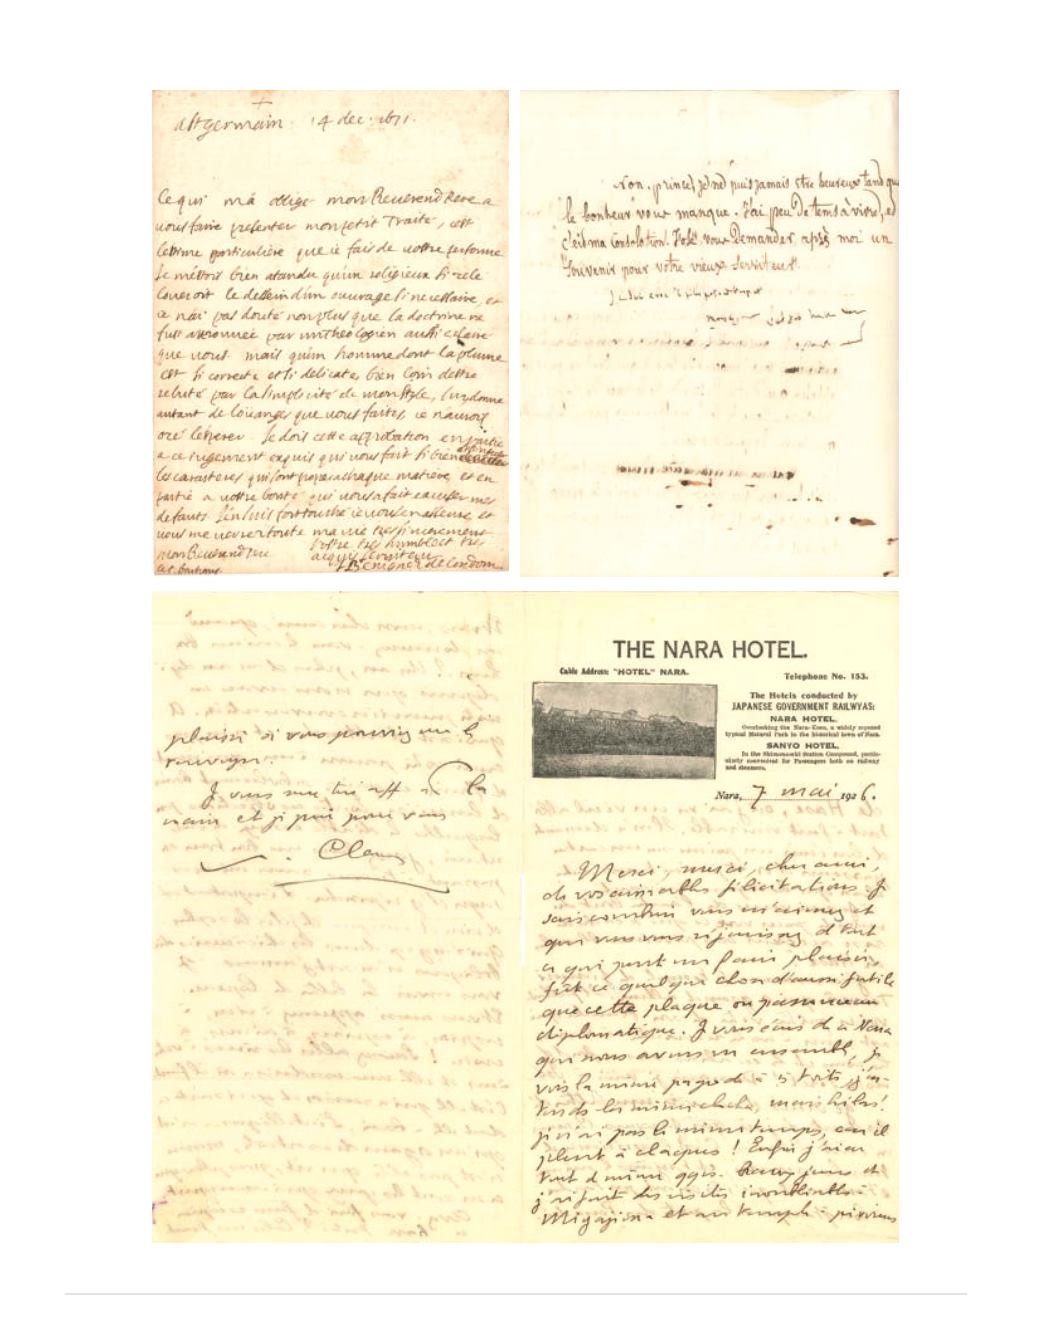 a St germain 14 dec. 1671.
Ce qui m'a obligé mon Reverend Pere a
vous faire presenter mon petit Traité, est
l'estime particuliere que ie fais de vostre personne
Je m'estois bien atandu qu'un religieux si zelé
loueroit le dessein d'un ouvrage si necessaire, et
ie n'ai pas douté non plus que la doctrine ne
fust approuvée par un theologien aussi eclairé
que vous. mais qu'un homme dont la plume
est si correcte et si delicate, bien loin destre
rebuté par la simplicité de mon style, luy donne
autant de louanges que vous faites, ie n'aurois
osé l'esperer. Je dois cette approbation en partie
a ce iugement exquis qui vous fait si bien
les caracteres qui sont propres a chaque matiere, et en
partie a vostre bonté qui vous a fait excuser mes
defauts. J'en suis fort touché ie vous en asseure, et
vous me verrez toute ma vie tres sincerement
mon Reverend Pere vostre tres humble et tres
acquis serviteur
a.p. bouhours J Benigne de Condom
Non, prince, je ne puis jamais etre heureux tand que
le bonheur vous manque. J'ai peu de tems à vivre, et
c'est ma Consolation. J'ose vous Demander après moi un
souvenir pour votre vieux serviteur.
plaisir si vous pouviez me l
envoyer.
Je vous serre très aff la
main et je prie pour vous
Claudel
THE NARA HOTEL.
Cable Address: "HOTEL" NARA.
Telephone No. 153.
The Hotels conducted by
JAPANESE GOVERNMENT RAILWYAS:
NARA HOTEL.
Overlooking the Nara-Koen, a widely reputed
typical Natural Park in the historical town of Nara.
SANYO HOTEL.
In the Shimonoseki Station Compound, partic-
ularly convenient for Passengers both on railway
and steamers.
Nara, 7 mai 1926.
Merci, merci, cher ami,
de vos aimables félicitations. Je
sais combien vous m'aimez et
que vous vous réjouissez de tout
ce qui peut me faire plaisir,
fût ce quelque chose d'aussi futile
que cette plaque ou passereau
diplomatique. Je vous écris de ce Nara
que nous avons vu ensemble, je
vois la même pagode à 5 toits, j'en-
tends les mêmes mais hélas!
je n'ai pas le même temps, car il
pleut à claques! Enfin j'ai eu
tout de même qqs. beaux jours et
j'ai fait des visites inoubliables à
Miyajima et au temple